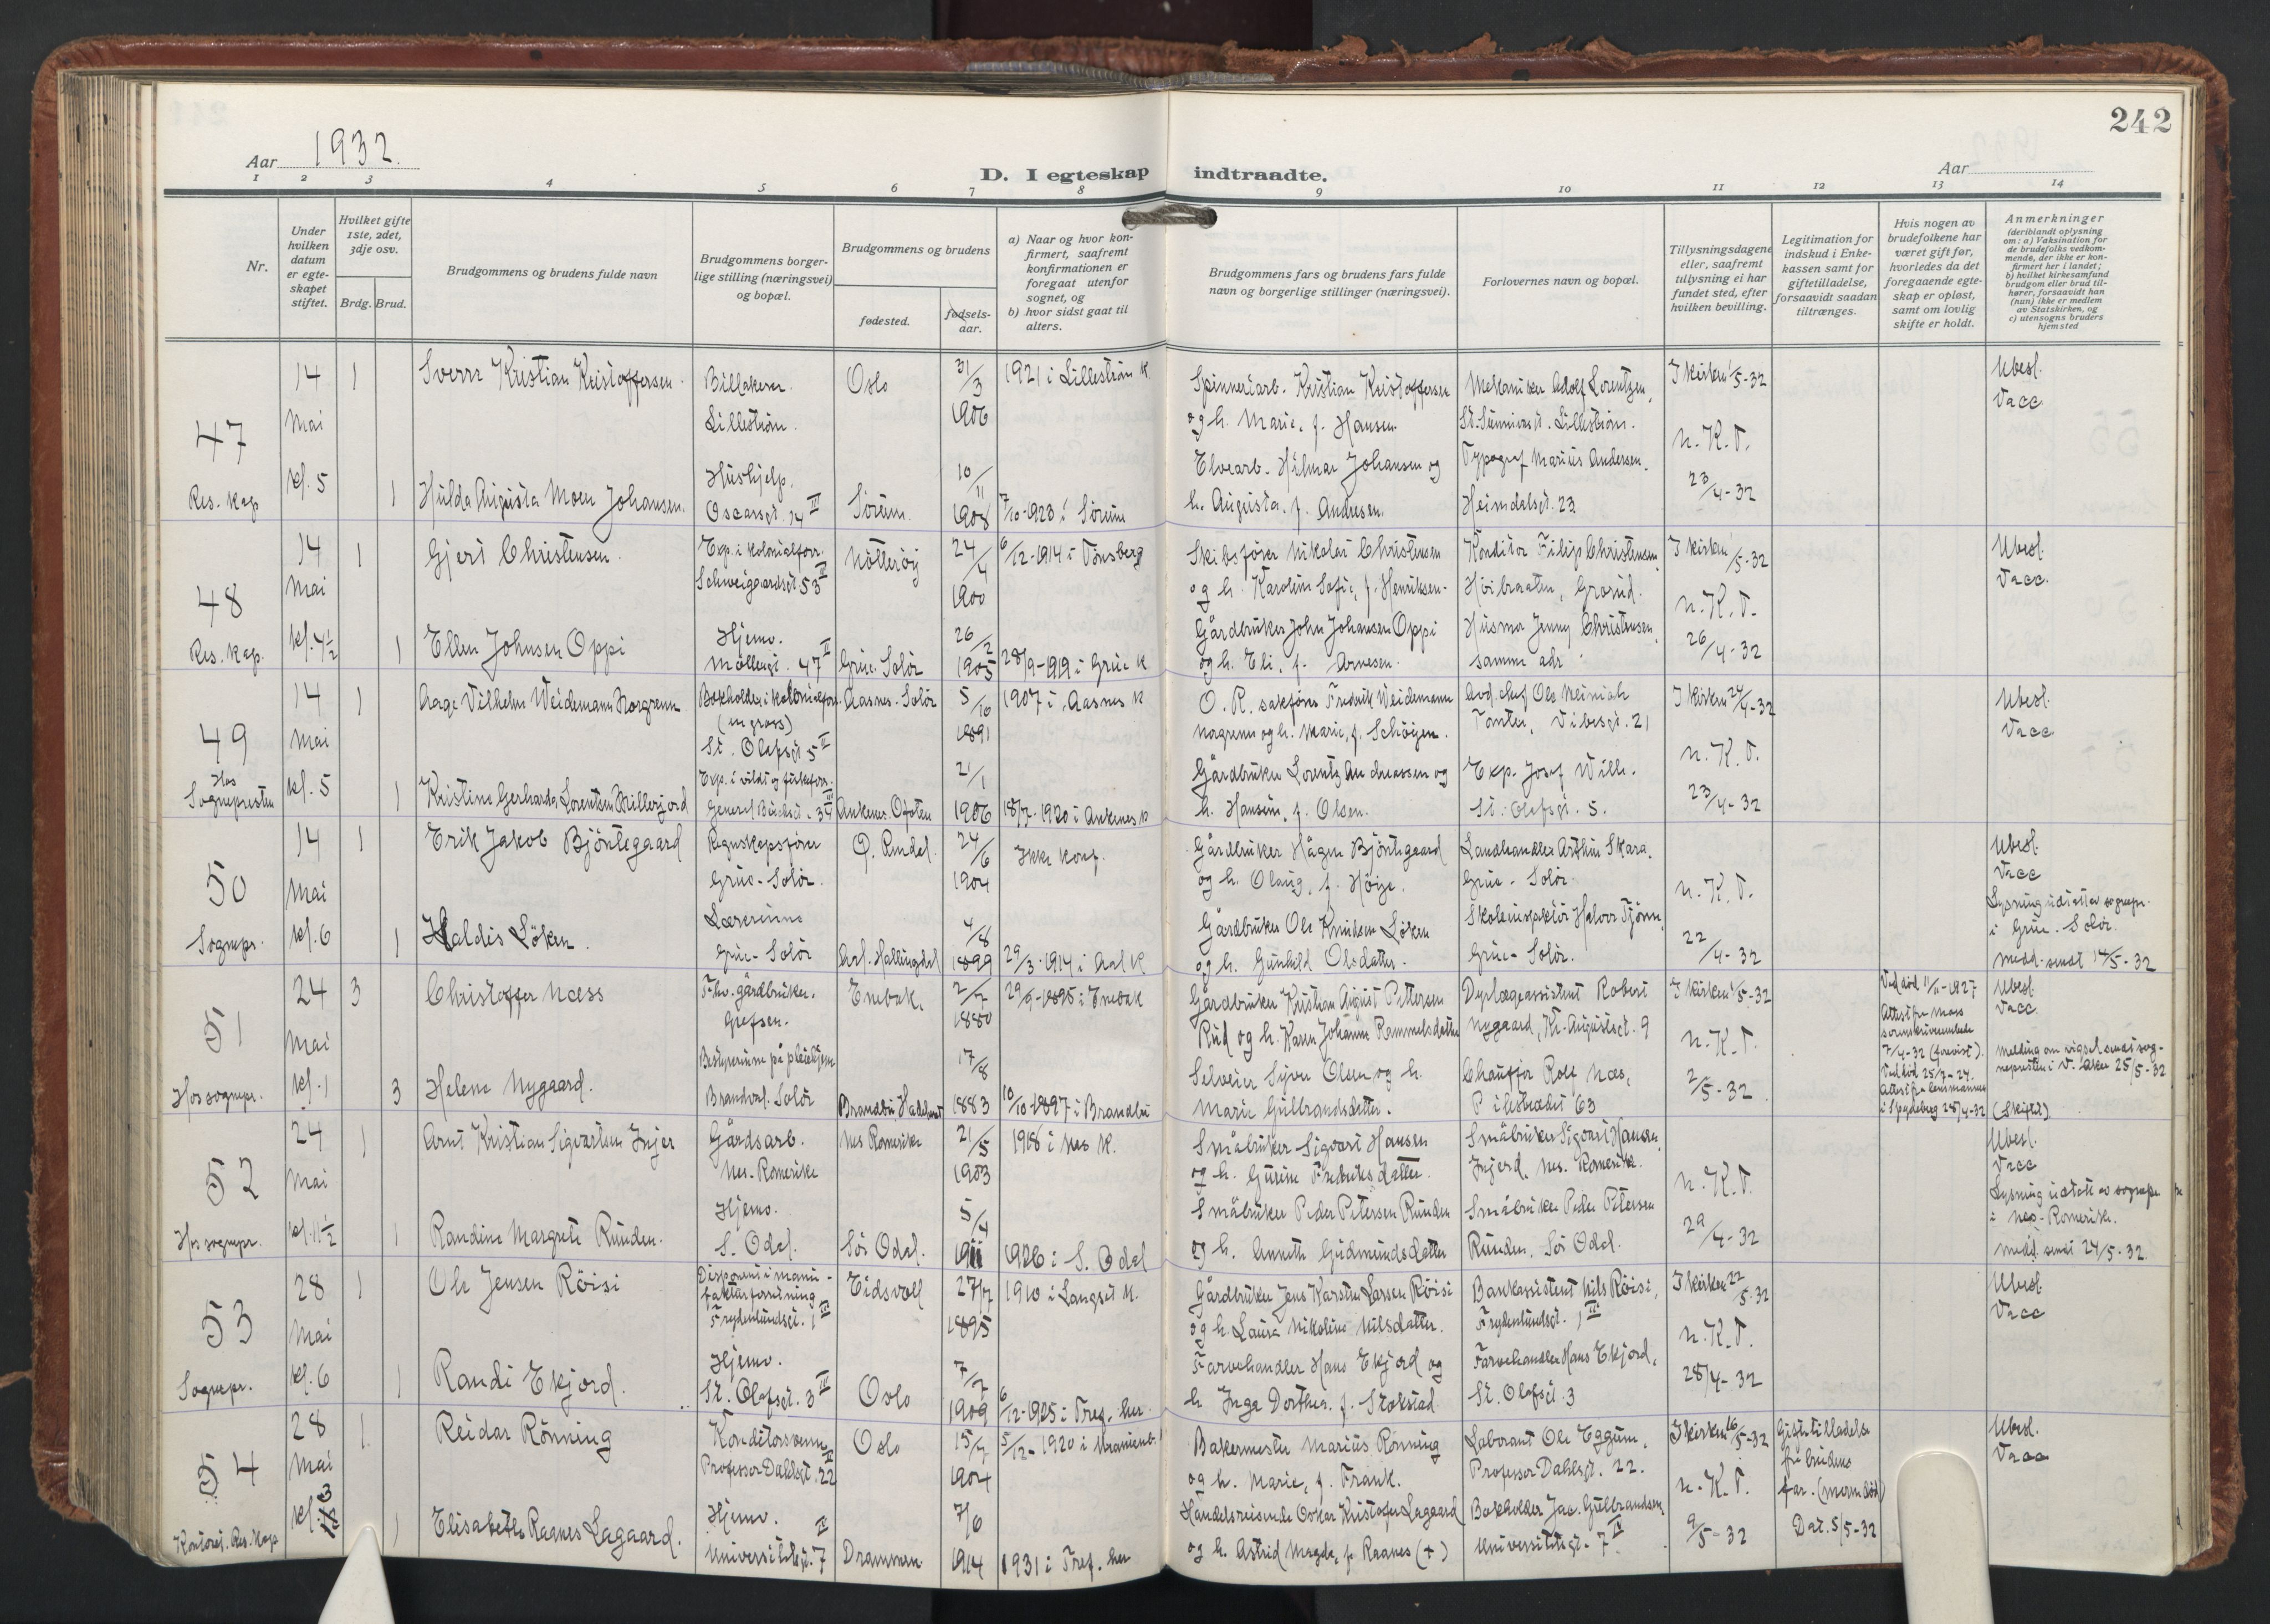 242
Aar 1932.
D. I egteskap indtraadte.
Aar
1 2 3 4 5 6 7 8 9 10 11 12 13 14
Nr.
Under hvilken datum er egteskapet stiftet.
Hvilket gifte 1ste, 2det, 3dje osv.
Brdg. Brud.
Brudgommens og brudens fulde navn
Brudgommens borgerlige stilling (næringsvei) og bopæl.
Brudgommens og brudens
fødested.
fødselsaar.
a) Naar og hvor konfirmert, saafremt konfirmationen er foregaat utenfor sognet, og
b) hvor sidst gaat til alters.
Brudgommens fars og brudens fars fulde navn og borgerlige stillinger (næringsvei).
Forlovernes navn og bopæl.
Tillysningsdagene eller, saafremt tillysning ei har fundet sted, efter hvilken bevilling.
Legitimation for indskud i Enkekassen samt for giftetilladelse, forsaavidt saadan tiltrænges.
Hvis nogen av brudefolkene har været gift før, hvorledes da det foregaaende egteskap er opløst, samt om lovlig skifte er holdt.
Anmerkninger (deriblandt oplysning om: a) Vaksination for de brudefolks vedkommende, der ikke er konfirmert her i landet; b) hvilket kirkesamfund brudgom eller brud tilhører, forsaavidt han (hun) ikke er medlem av Statskirken, og c) utensogns bruders hjemsted
47
Res. kap
14 Mai kl. 5
1 Sverre Kristian Kristoffersen. Billakerer. Lillestrøm. Oslo 31/3 1906 1921 i Lillestrøm K.
Spinneriarb. Kristian Kristoffersen og h. Marie, f. Hansen
Mekaniker Adolf Lorentzen, St. Sunnivasgt. Lillestrøm.
I kirken 1/5-32
Ubesl.
Vacc
1 Hulda Augusta Moen Johansen. Hushjelp. Oscarsgt. 14 III Sørum. 10/11 1908 7/10-1923 i Sørum
Elvearb. Hilmar Johansen og h. Augusta, f. Andresen.
Typograf Marius Andersen. Heimdalsgt. 23.
n. K. T.
23/4-32
48
Res. kap.
14 Mai kl. 4 1/2
1 Gjert Christensen. Exp. i kolonialforr. Schweigaardsgt 53 III Nøtterøy 24/4 1900 6/12-1914 i Tønsberg
Skibsfører Nikolai Christensen og h. Karoline Sofie, f. Henriksen.
Konditor Filip Christensen, Høibraaten, Grorud.
I kirken 1/5-32
Ubesl.
Vacc.
1 Ellen Johnsen Oppi Hjemv. Møllergt. 47 II Grue. Solør 26/2 1905 28/9-1919 i Grue K
Gårdbruker John Johansen Oppi og h. Eli, f. Arnesen.
Husmor Jenny Christensen, samme adr.
n. K. T.
26/4-32
49
Hos Sognepresten
14 Mai kl. 5
1 Aage Vilhelm Weidemann Norgrenn Bokholder i kolonialforr. (en gross) St. Olafsgt 5 II Aasnes. Solør 5/10 1891 1907 i Aasnes K
O. R. sakfører Fredrik Weidemann Norgrenn og h. Marie, f. Schøyen.
Avd. chef Ole Meinich Tonter, Vibesgt. 21
I kirken 24/4-32
Ubesl.
Vacc
1 Kristine Gerharda Lorentsen Millerjord Exp. i vildt og fiskeforr. General Birchsgt. 34 III Ankenes. Ofoten 21/1 1906 18/7-1920 i Ankenes K
Gårdbruker Lorentz Andreassen og h. Hansine, f. Olsen.
Exp. Josef Wille. St. Olafsgt. 5.
n. K. T.
23/4-32
50
Sognepr.
14 Mai kl. 6
1 Erik Jakob Bjøntegaard Regnskapsfører Grue-Solør. Ø. Rendal. 24/6 1904 Ikke konf.
Gårdbruker Hågen Bjøntegaard og h. Olaug, f. Høye.
Landhandler Arthur Skara. Grue - Solør.
Ubesl.
Vacc
1 Haldis Løken. Lærerinne Grue-Solør Aal. Hallingdal 4/8 1899 29/3-1914 i Aal K
Gårdbruker Ole Knudsen Løken og h. Gunhild Olsdatter.
Skoleinspektør Halvor Tjønn, Grue-Solør.
n. K. T.
22/4-32
Lysning utstått av sognepr. i Grue. Solør.
Medd. sendt 14/5-32
51
Hos sognepr.
24 Mai kl. 1
3 Christoffer Næss Fhv. gårdbruker. Grefsen. Enebak. 2/7 1880 29/9-1895 i Enebak
Gårdbruker Kristian August Pettersen Rud og h. Karen Johanne Rommelsdatter
Dyrlægeassistent Robert Nygaard, Kr. Augustsgt. 9
I kirken 1/5-32
Ved død 11/11-1927 Attest fra Moss sorenskriverembede 7/4-32 (forevist).
Ubesl.
Vacc.
3 Helene Nygaard. Bestyrerinne på pleiehjem Brandval. Solør Brandbu Hadeland 17/8 1883 10/10-1897 i Brandbu
Selveier Syver Olsen og h. Marie Gulbrandsdatter.
Chauffør Rolf Næs, Pilestrædet 63
n. K. T.
2/5-32
Ved død 25/7-24. Attest fra lensmannen i Spydeberg 28/4-32 (skiftet)
Melding om vigsel sendt sognepresten i V. Aker 25/5-32
52
Hos sognepr.
24 Mai kl. 11 1/2
1 Arnt Kristian Sigvartsen Injer Gårdsarb. Nes-Romerike Nes Romerike 21/5 1903 1918 i Nes K.
Småbruker Sigvart Hansen og h. Gurine Fredriksdatter.
Småbruker Sigvart Hansen, Injerd, Nes. Romerike.
Ubesl.
Vacc
1 Randine Margrete Runden. Hjemv. S. Odal. Sør Odal. 5/4 1911 1926 i S. Odal
Småbruker Peder Petersen Runden og h. Annette Gudmundsdatter
Småbruker Peder Petersen Runden, Sør Odal.
n. K. T.
29/4-32
Lysning utstått av sognepr i Nes-Romerike.
Medd. sendt 24/5-32.
53
Sognepr.
28 Mai kl. 6
1 Ole Jensen Røisi Disponent i manufakturforretning Frydenlundsgt. 1 III Eidsvoll 27/7 1895 1910 i Langset K.
Gårdbruker Jens Karsten Larsen Røisi og h. Laura Nikoline Nilsdatter.
Bankassistent Nils Røisi, Frydenlundsgt. 1 III
I kirken 22/5-32
Ubesl.
Vacc
1 Randi Ekjord. Hjemv. St. Olafsgt. 3 III Oslo 7/7 1909 6/12-1925 i Tref. her.
Farvehandler Hans Ekjord og h. Inga Dorthea, f. Stokstad.
Farvehandler Hans Ekjord, St. Olafsgt. 3
n. K. T.
28/4-32
54
Kontoret. Res. kap
28 Mai kl. 3
1 Reidar Rønning Konditorsvenn Professor Dahlsgt. 22 Oslo 15/7 1904 5/12-1920 i Uranienb.
Bakermester Marius Rønning og h. Marie, f. Frank.
Laborant Ole Eggum, Professor Dahlsgt. 22.
I kirken 16/5-32
Giftetilladelse fra brudens far. (moren død) Dat. 5/5-32
Ubesl.
Vacc
1 Elisabeth Raanes Lagaard. Hjemv. Universitetsgt. 7 IV Drammen 7/6 1914 1931 i Tref. her
Handelsreisende Oskar Kristofer Lagaard og h. Astrid Magda, f. Raanes (+)
Bokholder Jac. Gulbrandsen, Universitetsgt. 7 IV
n. K. T.
9/5-32